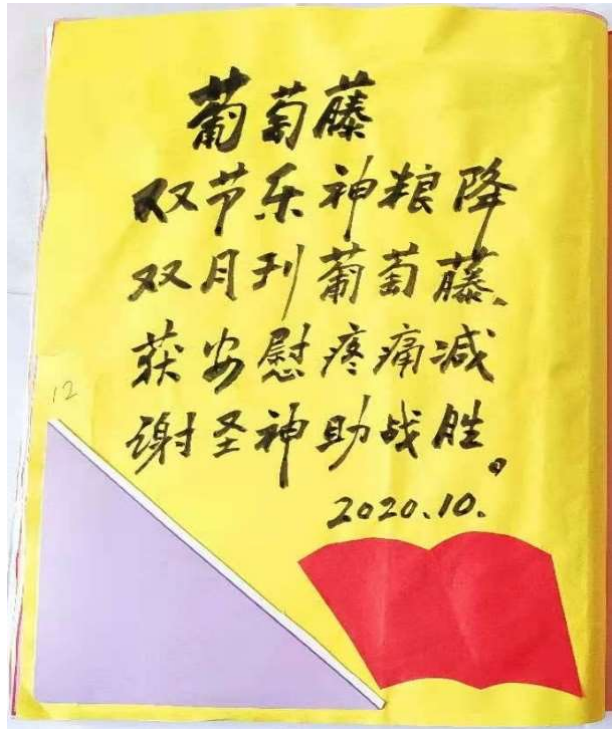 葡萄藤
双节乐神粮降
双月刊葡萄藤、
获安慰疼痛减
12
谢圣神助战胜。
2020.10.